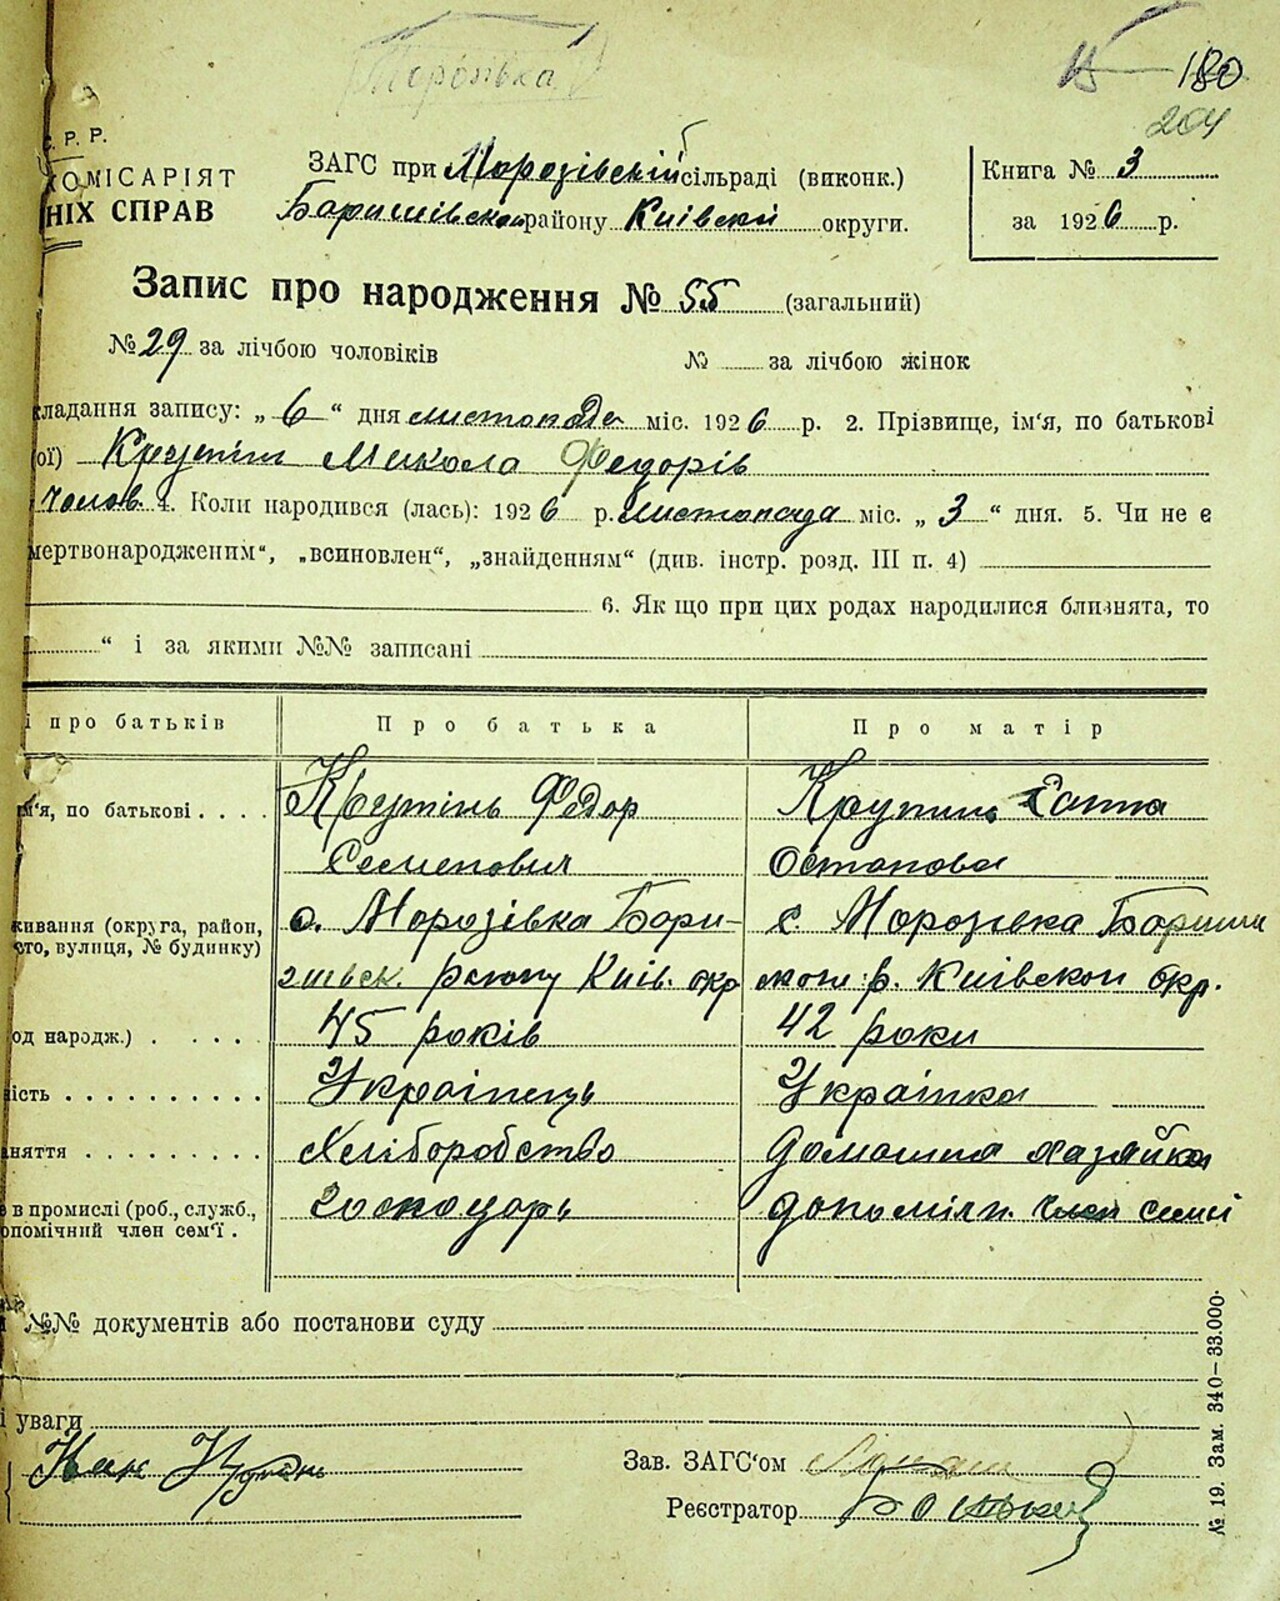 180
204
С. Р. Р.
ОМІСАРІЯТ
НІХ СПРАВ
ЗАГС при Морозівській сільраді (виконк.)
Баришівской району Київскй округи.
Книга № 3
за 1926 р.
Запис про народження № 55 (загальний)
№ 29 за лічбою чоловіків № за лічбою жінок
кладання запису: „ 6 “ дня листопада міс. 1926 р. 2. Прізвище, ім'я, по батькові
ої) Крутінь Микола Федорів
Чолов. 4. Коли народився (лась): 1926 р. листопада міс. „ 3 “ дня. 5. Чи не є
мертвонародженим“, „всиновлен“, „знайденням“ (див. інстр. розд. III п. 4)
6. Як що при цих родах народилися близнята, то
“ і за якими №№ записані
і про батьків Про батька Про матір
м'я, по батькові Крутінь Федор Крутинь Ганна
Семенович Остапова
живання (округа, район, с. Морозівка Бори- с. Морозівка Бариши
сто, вулиця, № будинку)
шівск. району Київ. окр р. Київскои окр.
од народж.) 45 років 42 роки
ність Українець Українка
аняття Хліборобство Домашня хазяйка
е в промислі (роб., служб., Господарь допоміжн. член семьі
опомічний член сем'ї .
№№ документів або постанови суду
і уваги
Зав. ЗАГС'ом
Реєстратор
№ 19. Зам. 340—33.000.